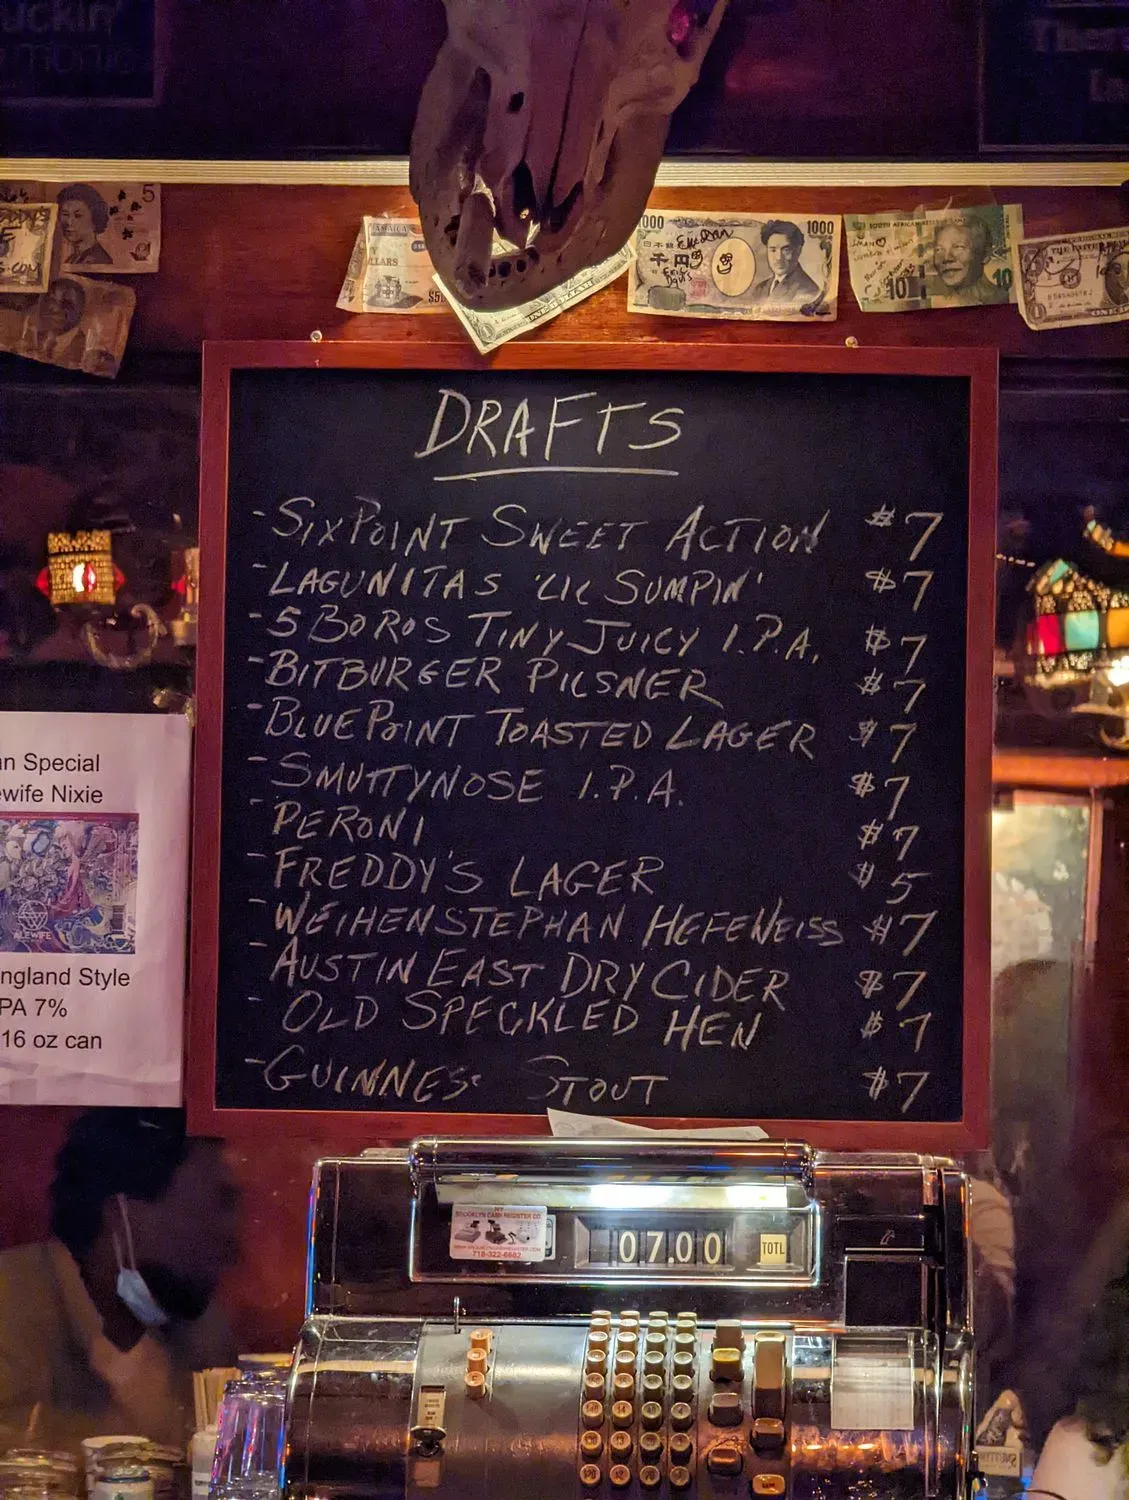 uckin'
5
1000
1000
日本
千円
Eric
Days
SOUTH AFRICAN
10
10
DRAFTS
-SIXPOINT SWEET ACTION $7
-LAGUNITAS 'LIL SUMPIN' $7
-5 BOROS TINY JUICY I.P.A. $7
-BITBURGER PILSNER $7
-BLUEPOINT TOASTED LAGER $7
-SMUTTYNOSE I.P.A. $7
-PERONI $7
-FREDDY'S LAGER $5
-WEIHENSTEPHAN HEFEWEISS $7
-AUSTIN EAST DRY CIDER $7
-OLD SPECKLED HEN $7
-GUINNESS STOUT $7
n Special
ewife Nixie
ALEWIFE
ngland Style
PA 7%
16 oz can
BROOKLYN CASH REGISTER CO.
718-322-6682
07.00
TOTL